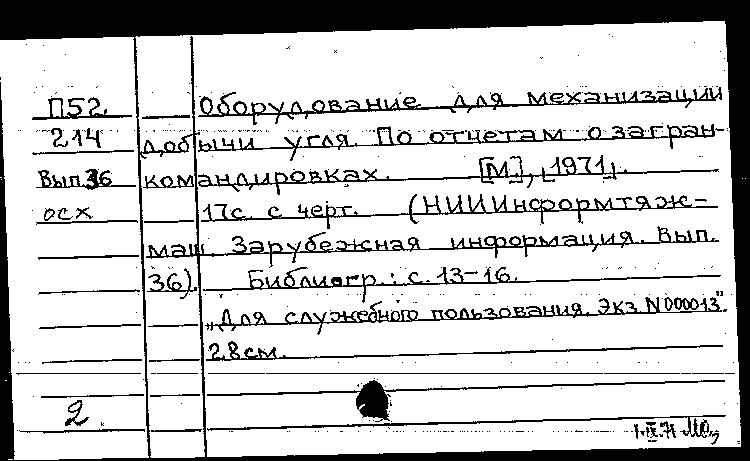 П52. Оборудование для механизации
214 добычи угля. По отчетам о загран-
Вып.36 командировках. [М.], [1971].
осх 17с. с черт. (НИИИнформтяж-
маш. Зарубежная информация. Вып.
36). Библиогр.: с. 13-16.
„Для служебного пользования. Экз. N000013".
28см.
2.
1.IX.71